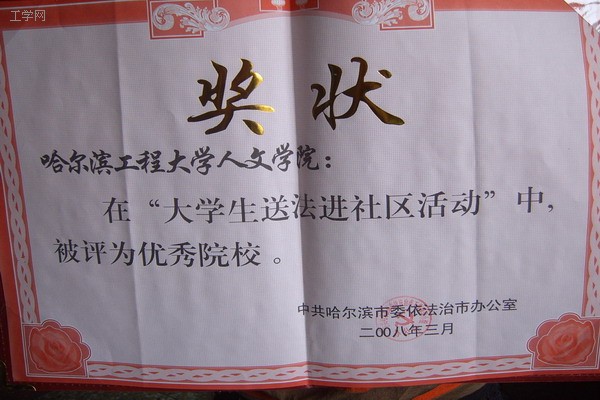 工学网
奖状
哈尔滨工程大学人文学院：
在“大学生送法进社区活动”中，
被评为优秀院校。
中共哈尔滨市委依法治市办公室
二00八年三月